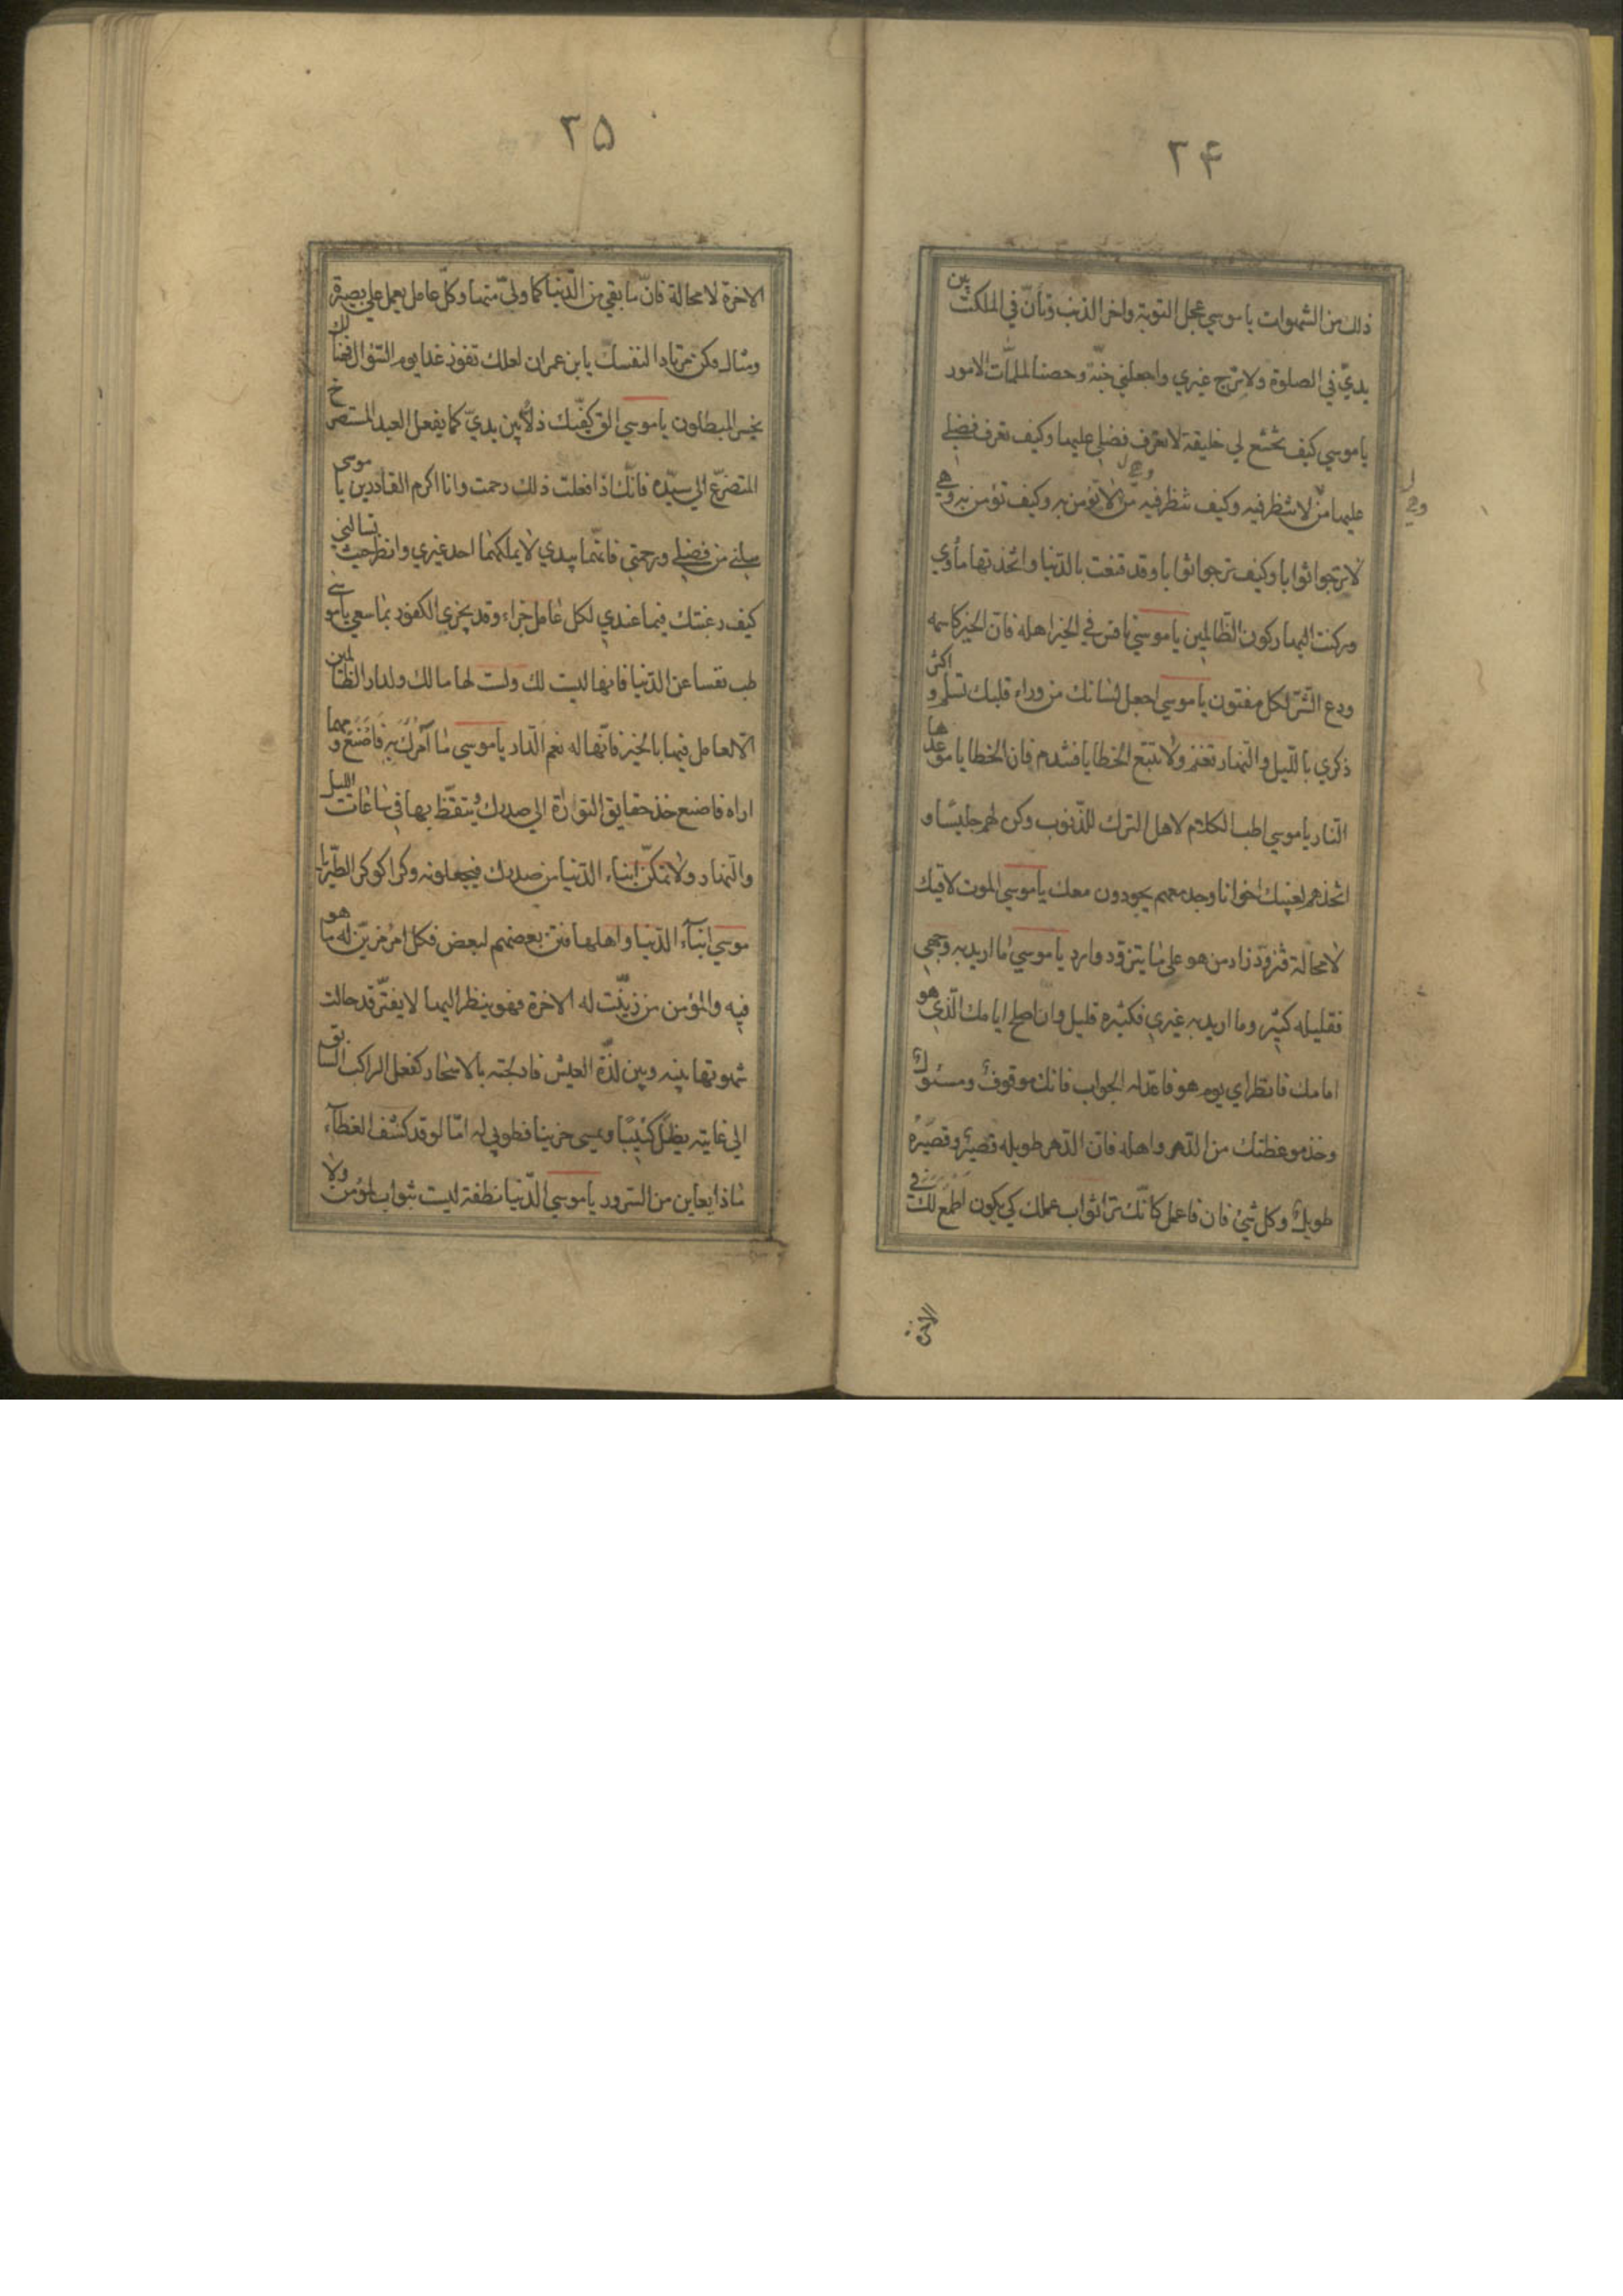 ۲۴
ذلك من الشهوات يا موسي عجل التوبة واخر الذنب وتأنّ في الملكت بين
يديّ في الصلوة ولا ترج غيري واجعلني جنّة وحصنا لملمّات الامور
يا موسي كيف تخشع لي خليقة لا تعرف فضلي عليها وكيف تعرف فضلي
عليها من لا تنظر فيه وكيف تنظر فيه من لا تؤمن به وكيف تؤمن به وهي
لا ترجوا ثوابا وكيف ترجوا ثوابا وقد قنعت بالدّنيا واتّخذتها مأوي
وركنت اليها ركون الظّالمين يا موسي نافس في الخير اهله فان الخير كاسمه
ودع الشّرّ لكل مفتون يا موسي اجعل لسانك من وراء قلبك تسلم و اكثر
ذكري بالليل والنّهار تغنم ولا تتبع الخطايا فتندم فان الخطايا موعدها
النّار يا موسي اطب الكلام لاهل الترك للذّنوب وكن لهم جليسًا و
اتّخذهم لغيبك اخوانا وجد معهم يجودون معك يا موسي الموت لاقيك
لا محالة فتزوّد زاد من هو علي ما يتزود وارد يا موسي ما اريد به وجهي
فقليله كثير وما اريد به غيري فكثيره قليل وان اصلح ايامك الّذي هو
امامك فانظر اي يوم هو فاعد له الجواب فانك موقوف ومسئول
وخذ موعظتك من الدّهر واهله فانّ الدّهر طويله قصير وقصيره
طويل وكل شئ فان فاعمل كانّك تري ثواب عملك كي يكون اطمع لك في
الاخرة
۲۵
الاخرة لا محالة فانّ ما بقي من الدّنيا كما وليّ منها وكلّ عامل يعمل علي بصيرة
ومثال فكن مرتادا لنفسك يابن عمران لعلك تفوز غدا يوم السّؤال فهنالك
يخسر المبطلون يا موسي الق كفّيك ذلّا بين يديّ كما يفعل العبد المستصرخ
المتضرّع الي سيّده فانّك اذا فعلت ذلك رحمت وانا اكرم القادرين يا موسي
سلني من فضلي ورحمتي فانّهما بيدي لا يملكهما احد غيري وانظر حيث تسالني
كيف رغبتك فيما عندي لكل عامل جزاء وقد يجزي الكفور بما سعي يا موسي
طب نفسا عن الدّنيا فانها ليست لك ولست لها مالك ولدار الظّالمين
الّا لعامل فيها بالخير فانّها له نعم الدّار يا موسي ما آمرك به فاصنع ومهما
اراه فاصنع خذ حقايق التوارة الي صدرك وتيقّظ بها في ساعات الليل
والنّهار ولا تمكّن ابناء الدّنيا من صدرك فيجعلونه وكرا كوكر الطّير يا
موسي ابناء الدّنيا واهلها فتن بعضهم لبعض فكل امرء مزيّن له ما هو
فيه والمؤمن من زيّنت له الاخرة فهو ينظر اليها لا يفترّ قد حالت
شهوتها بينه وبين لذّة العيش فادلجته بالاسحار كفعل الراكب السابق
الي غايته يظلّ كئيبًا ويمسي حزينا فطوبي له امّا لو قد كشف الغطاء
ماذا يعاين من السّرور يا موسي الدّنيا نطفة ليست بثواب لمؤمن ولا